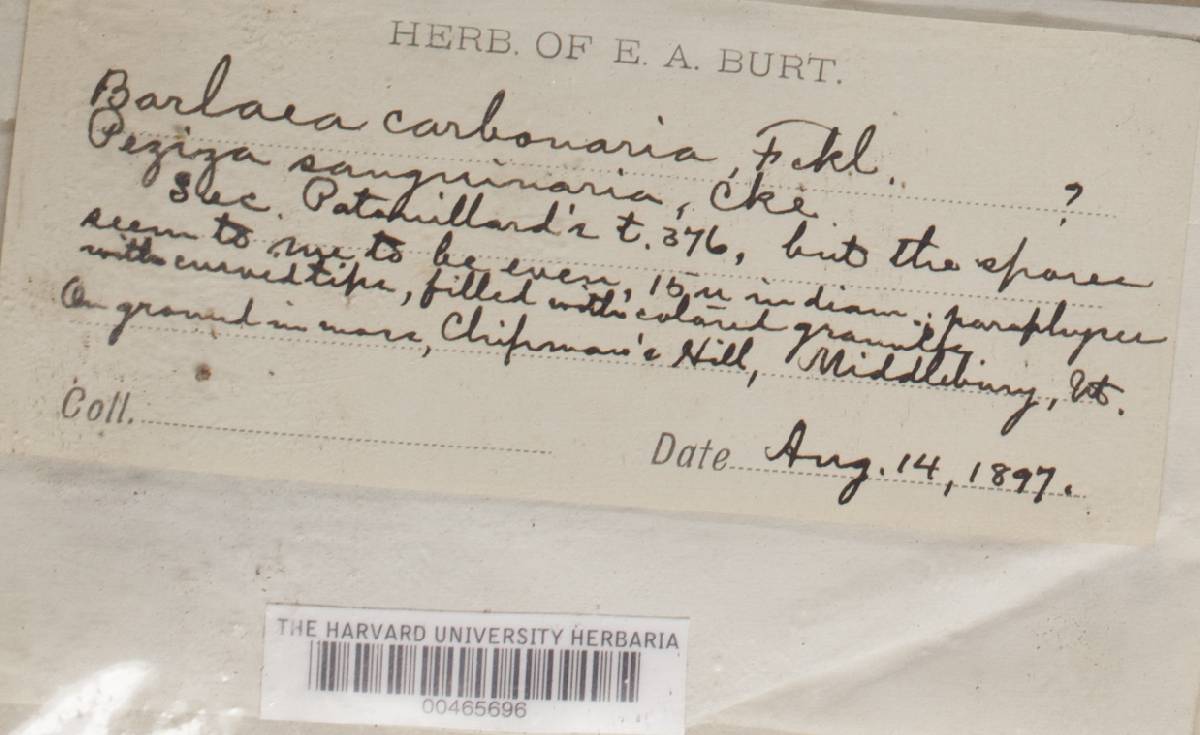 HERB. OF E. A. BURT.
Barlaea carbonaria, Fckl.
?
Peziza sanguinaria, Cke
Sec. Patouillard's t. 376, but the spores
seem to me to be even, 15 u in diam.; paraphyses
with curved tips, filled with colored granules
On ground in moss, Chipman's Hill, Middlebury, Vt.
Coll.
Date Aug. 14, 1897.
THE HARVARD UNIVERSITY HERBARIA
00465696